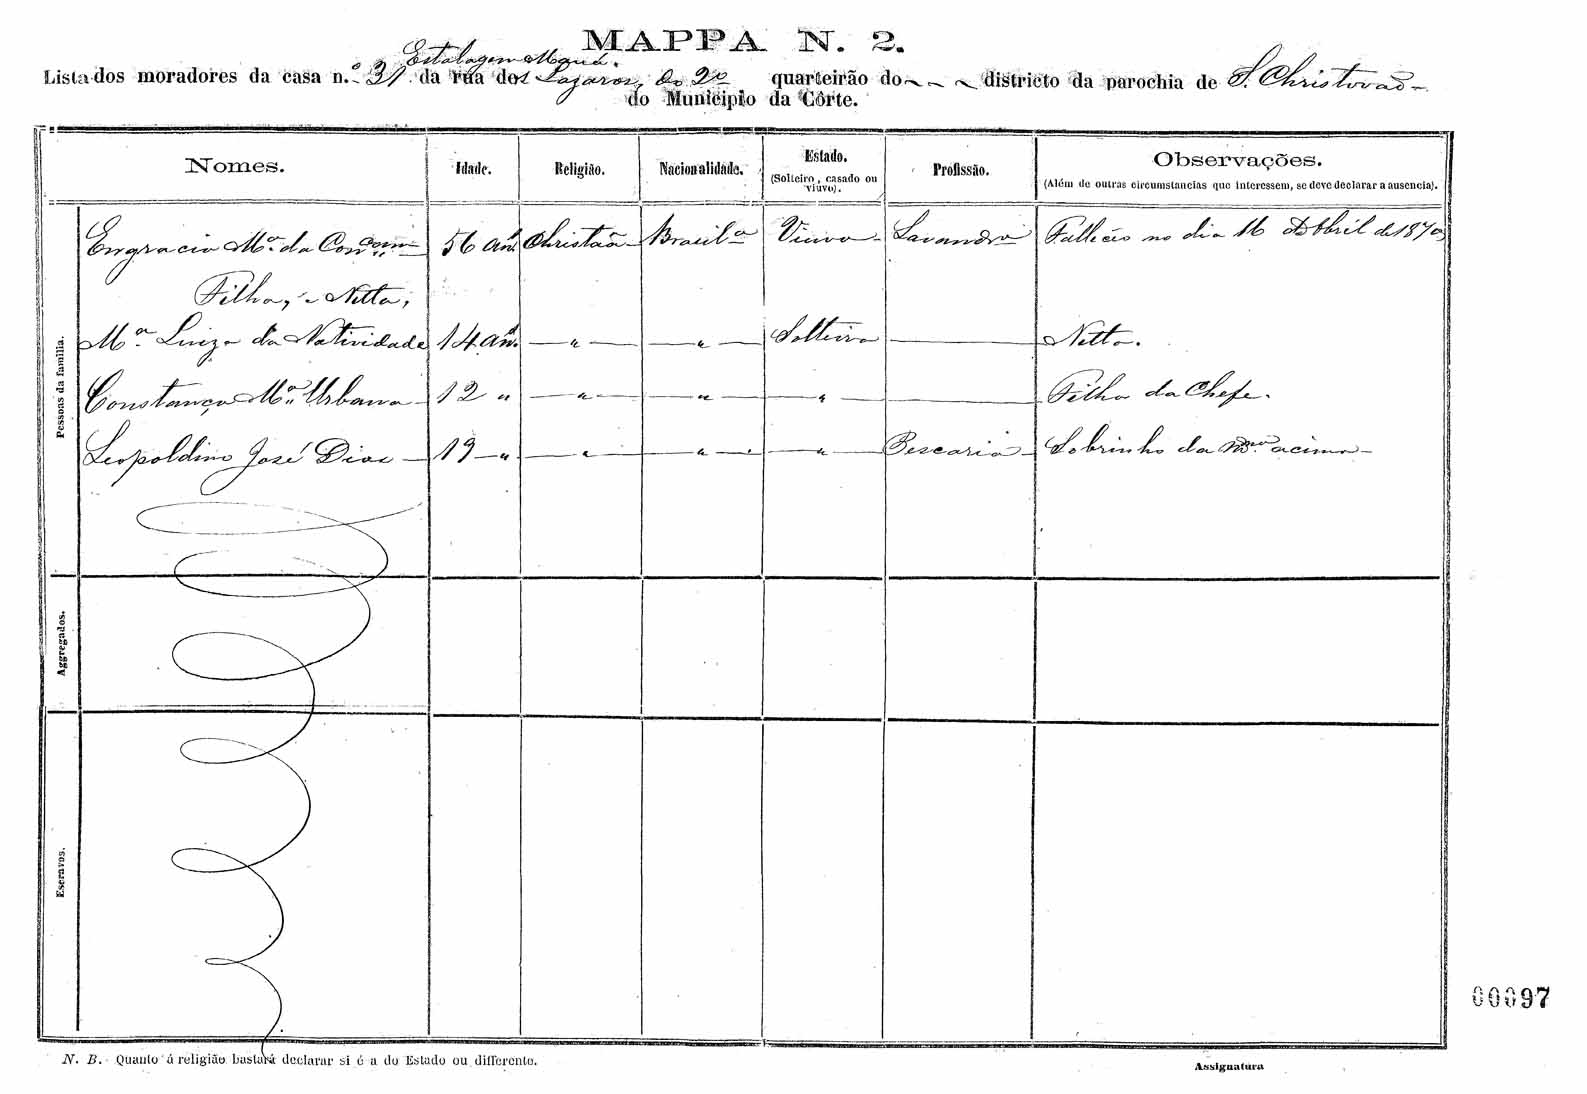 MAPPA N. 2.
Estalagem Mauá.
Lista dos moradores da casa n.º 31 da rua dos Lazaros, do 2º quarteirão do districto da parochia de S. Christovão
do Municipio da Côrte.
Nomes. Idade. Religião. Nacionalidade. Estado. (Solteiro, casado ou viuvo). Profissão. Observações. (Além de outras circumstancias que interessem, se deve declarar a ausencia).
Pessoas da familia.
Engracia Mª da Concam 56 an Christaã Brasilª Viuva Lavandrª Falleceo no dia 16 D'Abril de 1870
Filha, e Netta,
Mª Luiza da Natividade 14 an. — " — — " — Solteira — Netta.
Constança Mª Urbana 12 " — " — — " — — " — — Filha da Chefe.
Leopoldino José Dias 19 " — " — — " — — " — Pescaria Sobrinho da mma acima
Aggregados.
Escravos.
N. B. Quanto á religião bastará declarar si é a do Estado ou differente.
Assignatura
00097